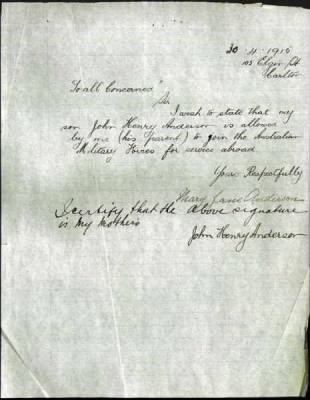 30 . 4 . 1915
103 Elgin St
Carlton
To all Concerned"
Sir
I wish to state that my
son John Henry Anderson is allowed
by me (his Parent) to join the Australian
Military Forces for service abroad
Yours Respectfully
Mary Jane Anderson
I certify that the above signature
is my mothers
John Henry Anderson